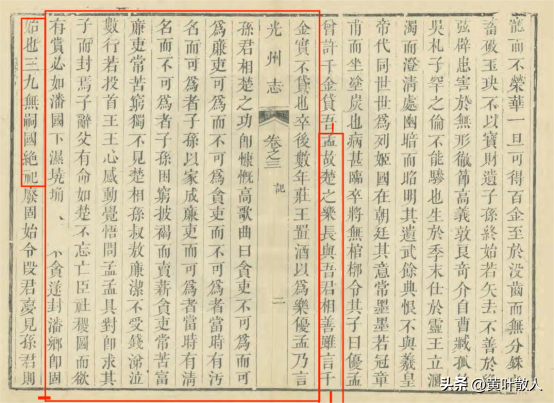 龍而不榮華一旦可得百金至於沒齒而無分銖
蓄破玉玦不以寶財遺子孫終始若矢去不善於
弦辟患害於無形徹節高義敦良奇介自曹臧孤
吳札子罕之倫不能驂也生於季末仕於靈王立溷
濁而澄清處幽暗而昭明其遺武餘典恨不與羲皇
帝代同世世為列姬國在朝廷其意常墨墨若冠章
甫而坐塗炭也病甚臨卒將無棺槨令其子曰優孟
曾許千金貸吾孟故楚之樂長與吾君相善雖言千
金實不貸也卒後數年莊王置酒以為樂優孟乃言
光州志 卷之三 記 二
孫君相楚之功卽慷慨高歌曲曰貪吏不可為而可
為廉吏可為而不可為貪吏而不可為者當時有污
名而可為者子孫以家成廉吏而可為者當時有清
名而不可為者子孫困窮披褐而賣薪貪吏常苦富
廉吏常苦窮獨不見楚相孫叔敖廉潔不受錢涕泣
數行若投首王王心感動覺悟問孟孟具對卽求其
子而封焉子辭父有命如楚不忘亡臣社稷圖而欲
有賞必如潘國下濕墝埆、不貪遂封潘鄉卽固
始也三九無嗣國絕祀廢固始令段君夢見孫君則
头条 @黄叶散人